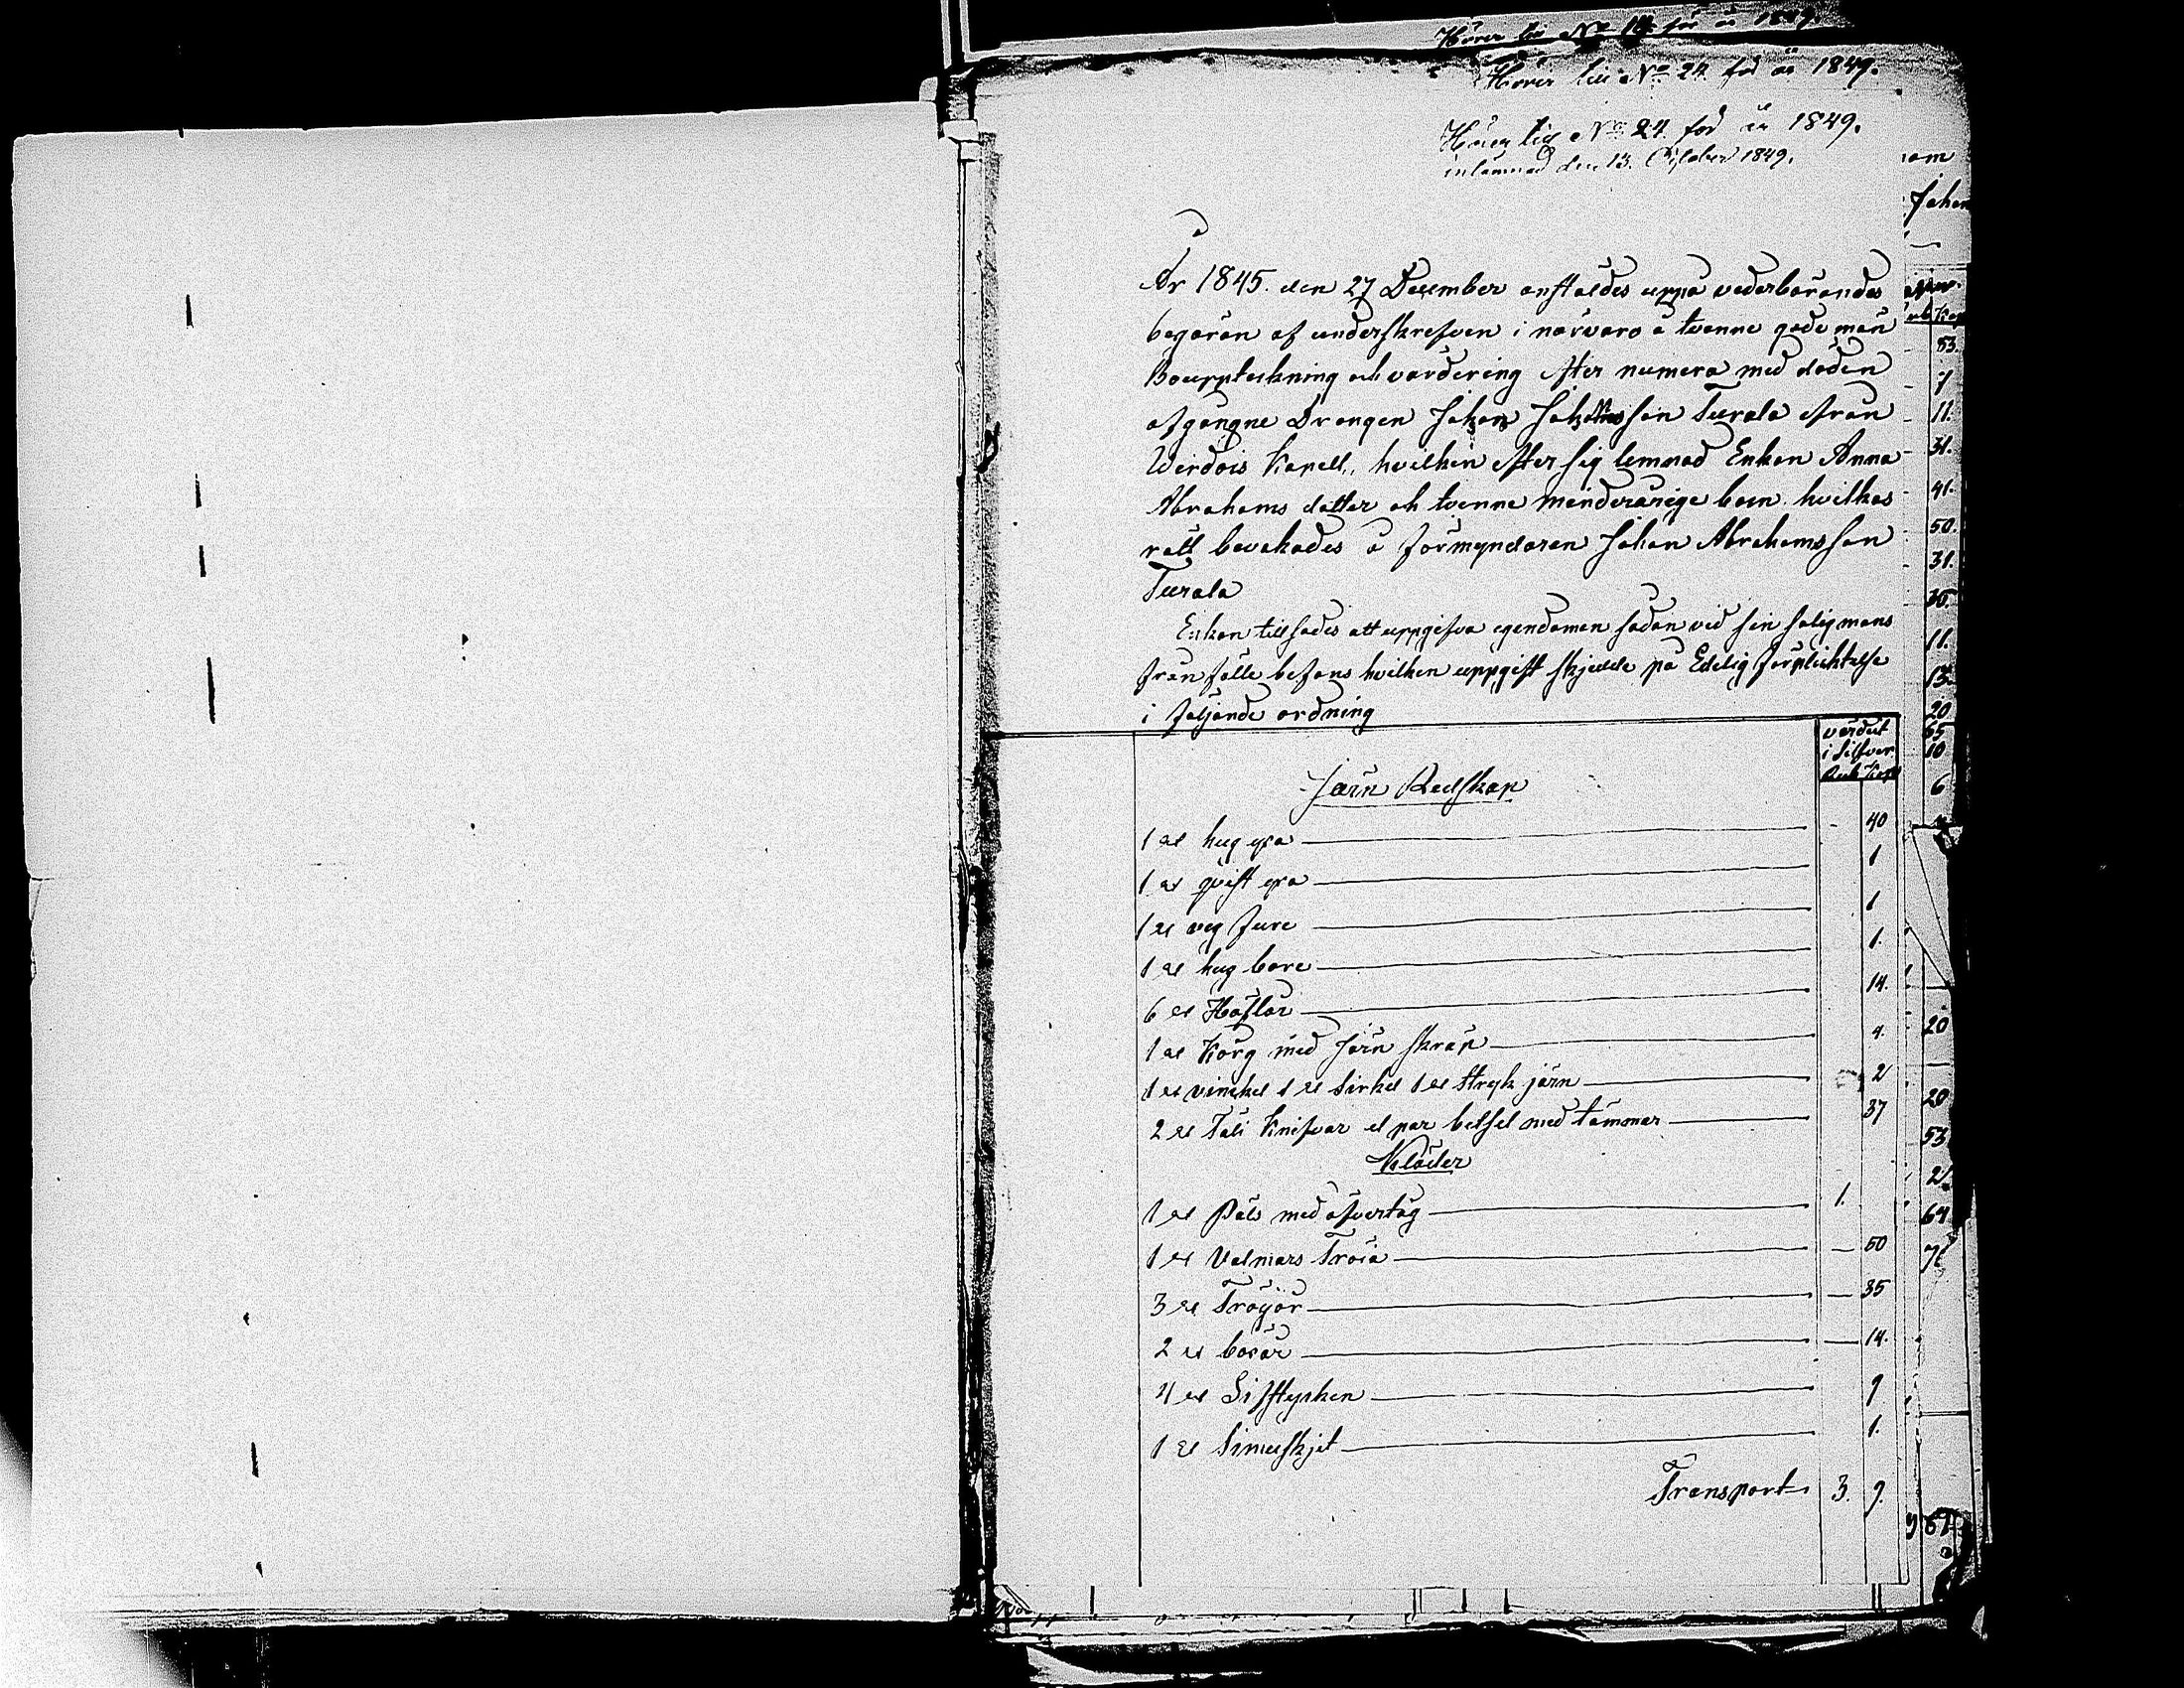 Hörer till No 24 för år 1849.
Hörer till No 24 för år 1849.
inlämnad den 13. October 1849.
År 1845. den 27 December anstaldes uppå vederbörandes
begäran af underskrefven i närvaro a tvenne gode män
Bouppteckning och värdering efter numera med döden
afgångne Drängen Johan Johansson Turala ifrån
Virdois Kapell, hvilken efter sig lemnad Enkan Anna
Abrahams dotter och tvenne minderårige barn hvilkas
rätt bevakades a förmyndaren Johan Abrahamsson
Turala
Enkan tillsades att uppgifva egendomen sådan vid sin salig mans
frånfälle befans hvilken uppgift skjedde på Edelig förplichtelse
i följande ordning
värdet
i Silfver
Rub Kop
Järn Redskap
1 st hug yxa - 40
1 st qvist yxa 1
1 st veg fure 1
1 st hug bore 1.
6 st Häflar 14.
1 st Korg med Järn skrap 4.
1 st vinckel 1 st Sirkel 1 st Stryk järn 2
2 st Täli Knifvar et par betsel med tämmar 37
Kläder
1 st Päls med öfvertåg 1.
1 st Valmars Tröia — 50
3 st Tröyör — 35
2 st böxär — 14.
4 st Lifstycken 9
1 st Simuskjet 1.
Transport 3. 9.